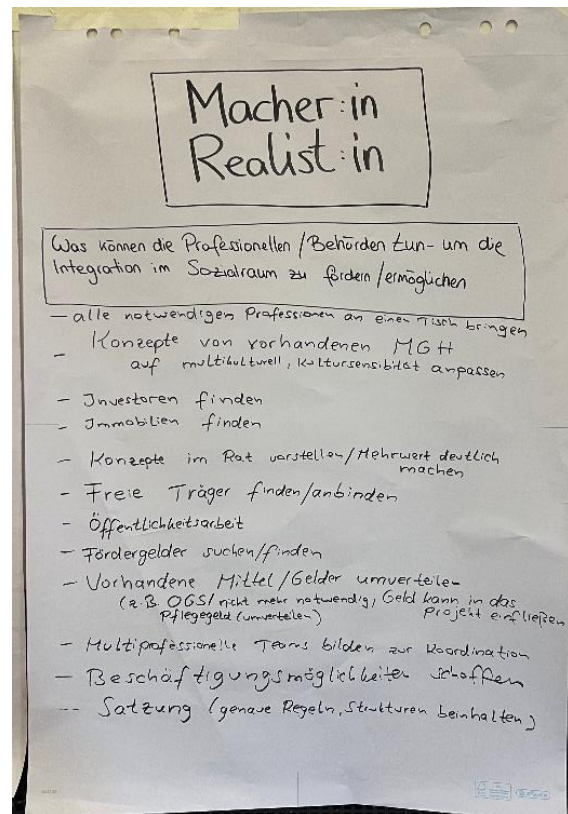 Macher:in
Realist:in
Was können die Professionellen/Behörden tun- um die
Integration im Sozialraum zu fördern/ermöglichen
- alle notwendigen Professionen an einen Tisch bringen
- Konzepte von vorhandenen MGH
auf multikulturell, Kultursensibität anpassen
- Investoren finden
- Immobilien finden
- Konzepte im Rat vorstellen/Mehrwert deutlich
machen
- Freie Träger finden/anbinden
- Öffentlichkeitsarbeit
- Fördergelder suchen/finden
- Vorhandene Mittel/Gelder umverteilen
(z.B. OGS/ nicht mehr notwendig, Geld kann in das
Pflegegeld (umverteilen) Projekt einfließen
- Multiprofessionelle Teams bilden zur Koordination
- Beschäftigungsmöglichkeiten schaffen
-- Satzung (genaue Regeln, Strukturen beinhalten)